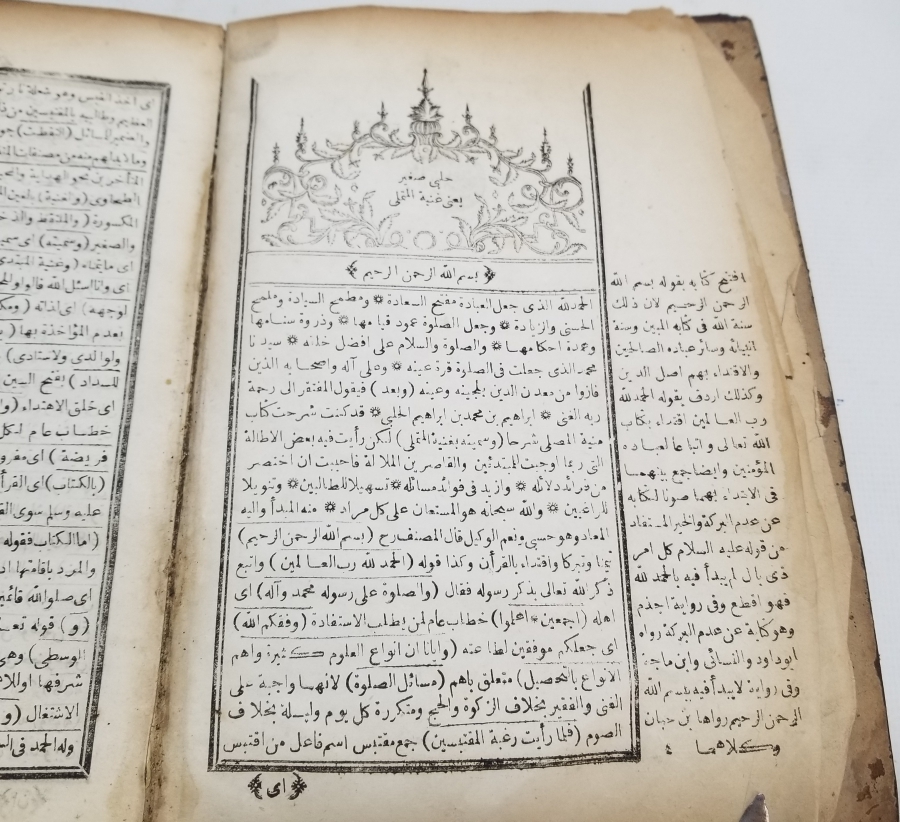 حلبی صغیر
یعنی غنیة المتملی
بسم الله الرحمن الرحيم
الحمد لله الذى جعل العبادة مفتح السعادة * ومطمح السيادة وملمح
الحسنى وازيادة * وجعل الصلوة عمود قيامها * وذروة سنامها
وعمدة احكامها * والصلوة والسلام على افضل خلقه * سيدنا
محمد الذى جعلت فى الصلوة قرة عينه * وعلى آله واصحابه الذين
فازوا من معدن الدين بلجينه وعينه (وبعد) فيقول المفتقر الى رحمة
ربه الغنى * ابراهيم بن محمد بن ابراهيم الحلبى * قد كنت شرحت كتاب
منية المصلى شرحا (وسميته بغنية المتملى) لكن رأيت فيه بعض الاطالة
التى ربما اوجبت للمبتدئين والقاصرين الملالة فاحببت ان اختصر
من فرائد دلائله * وازيد فى فوائد مسائله * تسهيلا للطالبين * وتنويلا
للراغبين * والله سبحانه هو المستعان على كل مراد * منه المبدأ واليه
المعاد وهو حسبى ونعم الوكيل قال المصنف رح (بسم الله الرحمن الرحيم)
تيمنا وتبركا واقتداء بالقرأن وكذا قوله (الحمد لله رب العالمين) واتبع
ذكر الله تعالى بذكر رسوله فقال (والصلوة على رسوله محمد وآله) اى
اهله (اجمعين * اعلموا) خطاب عام لمن يطلب الاستفادة (وفقكم الله)
اى جعلكم موفقين لطاعته (وايانا ان انواع العلوم كثيرة واهم
الانواع بالتحصيل) متعلق باهم (مسائل الصلوة) لانها واجبة على
الغنى والفقير بخلاف الزكوة والحج ومتكررة كل يوم وليلة بخلاف
الصوم (فلما رأيت رغبة المقتبسين) جمع مقتبس اسم فاعل من اقتبس
اى
افتتح كتابه بقوله بسم الله
الرحمن الرحيم لان ذلك
سنة الله فى كتابه المبين وسنة
انبيائه وسائر عباده الصالحين
والاقتداء بهم اصل الدين
وكذلك اردف بقوله الحمد لله
رب العالمين اقتداء بكتاب
الله تعالى واتباعا لعباده
المؤمنين وايضا جمع بينهما
فى الابتداء بهما صونا لكتابه
عن عدم البركة والخير المستفاد
من قوله عليه السلام كل امر
ذى بال لم يبدأ فيه بالحمد لله
فهو اقطع وفى رواية اجذم
وهو كناية عن عدم البركة رواه
ابو داود والنسائى وابن ماجة
وفى رواية لا يبدأ فيه ببسم الله
الرحمن الرحيم رواها بن حبان
وكلاهما
اى اخذ القبس وهو شعلة نار
العظيم وطالبيه بالمقتبسين
والضمير للمسائل (التقطت)
وما لا بد لهم منه من مصنفات
المتأخرين نحو الهداية
الطحاوى (والغنية) بالغين
المكسورة (والملتقط
والصغير (وسميته) اى
اى ما يتمناه (وغنية المبتدى
اى وانا اسئل الله
لوجهه) اى لذاته
بعدم المؤاخذة بها
ولوالدى ولاستادى)
للسداد) بفتح السين
اى خلق الاهتداء
خطاب عام لكل
فريضة) اى
(بالكتاب) اى القرأ
عليه وسلم سوى
(اما الكتاب فقوله
والمزد باقامتها
اى صلوا لله
(و) قوله
الوسطى) وهى
شرفها
الاشتغال (و
وله الحمد فى